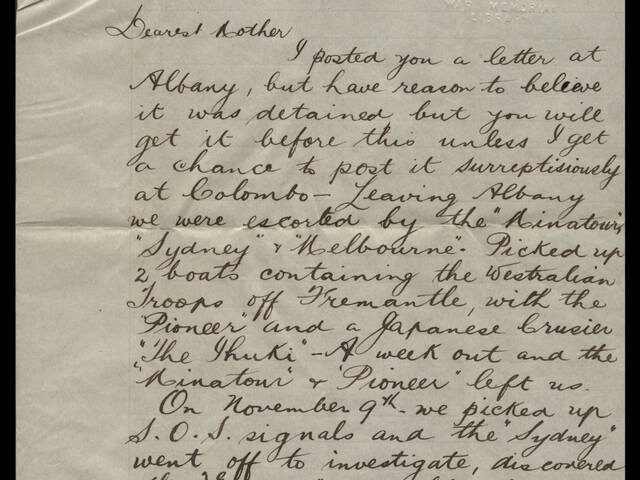 WAR MEMORIAL
LIBRARY
Dearest Mother
I posted you a letter at
Albany, but have reason to believe
it was detained but you will
get it before this unless I get
a chance to post it surreptisiously
at Colombo - Leaving Albany
we were escorted by the "Minatour",
"Sydney" & "Melbourne". Picked up
2 boats containing the Westralian
Troops off Fremantle, with the
"Pioneer" and a Japanese Crusier
"The Ihuki" - A week out and the
"Minatour" & "Pioneer" left us.
On November 9th - we picked up
S.O.S. signals and the "Sydney"
went off to investigate, discovered